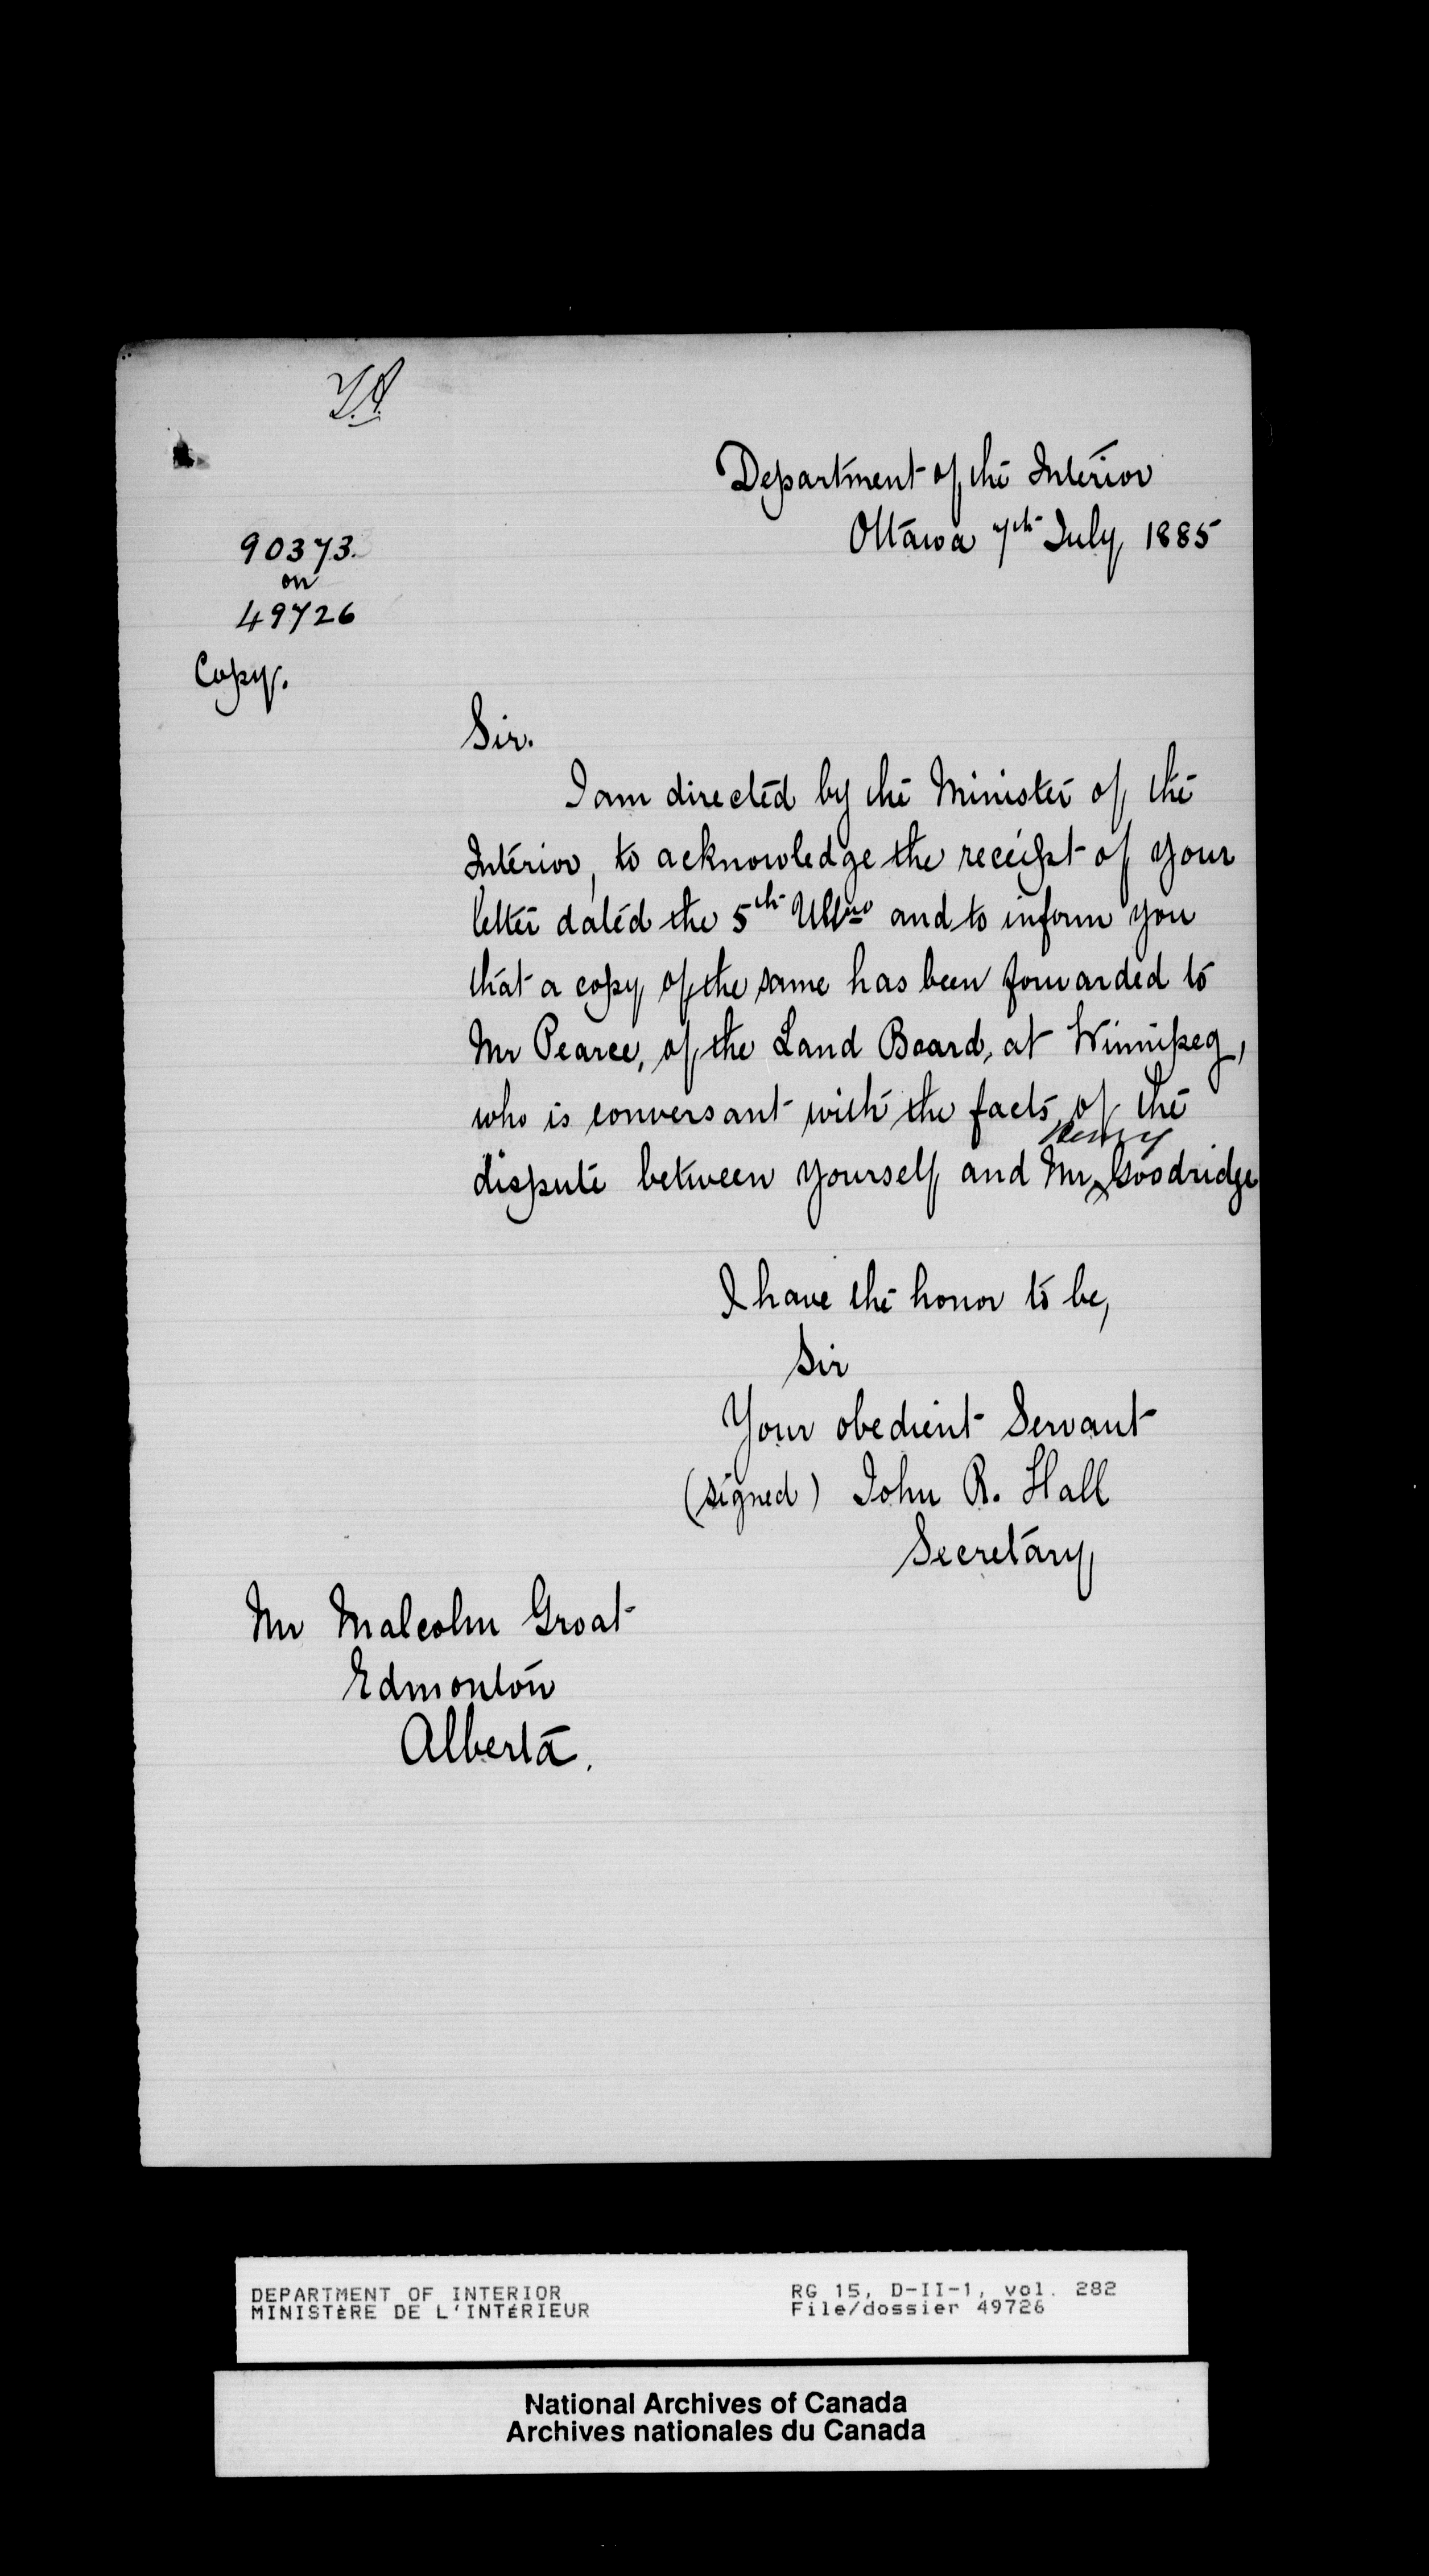 Department of the Interior
Ottawa 7th July 1885
90373.
on
49726
Copy.
Sir.
I am directed by the Minister of the
Interior, to acknowledge the receipt of your
letter dated the 5th Ulto and to inform you
that a copy of the same has been forwarded to
Mr Pearce, of the Land Board, at Winnipeg,
who is conversant with the facts of the
Henry
dispute between yourself and Mr Goodridge
I have the honor to be,
Sir
Your obedient Servant
(signed) John R. Hall
Secretary
Mr Malcolm Groat
Edmonton
Alberta.
DEPARTMENT OF INTERIOR
MINISTÈRE DE L'INTÉRIEUR
RG 15, D-II-1, vol. 282
File/dossier 49726
National Archives of Canada
Archives nationales du Canada